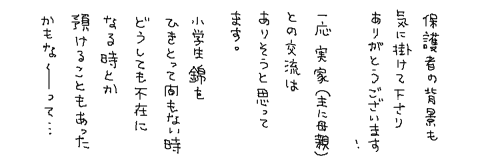 保護者の背景も
気に掛けて下さり
ありがとうございます!
一応 実家(主に母親)
との交流は
ありそうと思って
ます。
小学生 錦を
ひきとって間もない時
どうしても不在に
なる時とか
預けることもあった
かもな〜〜って…